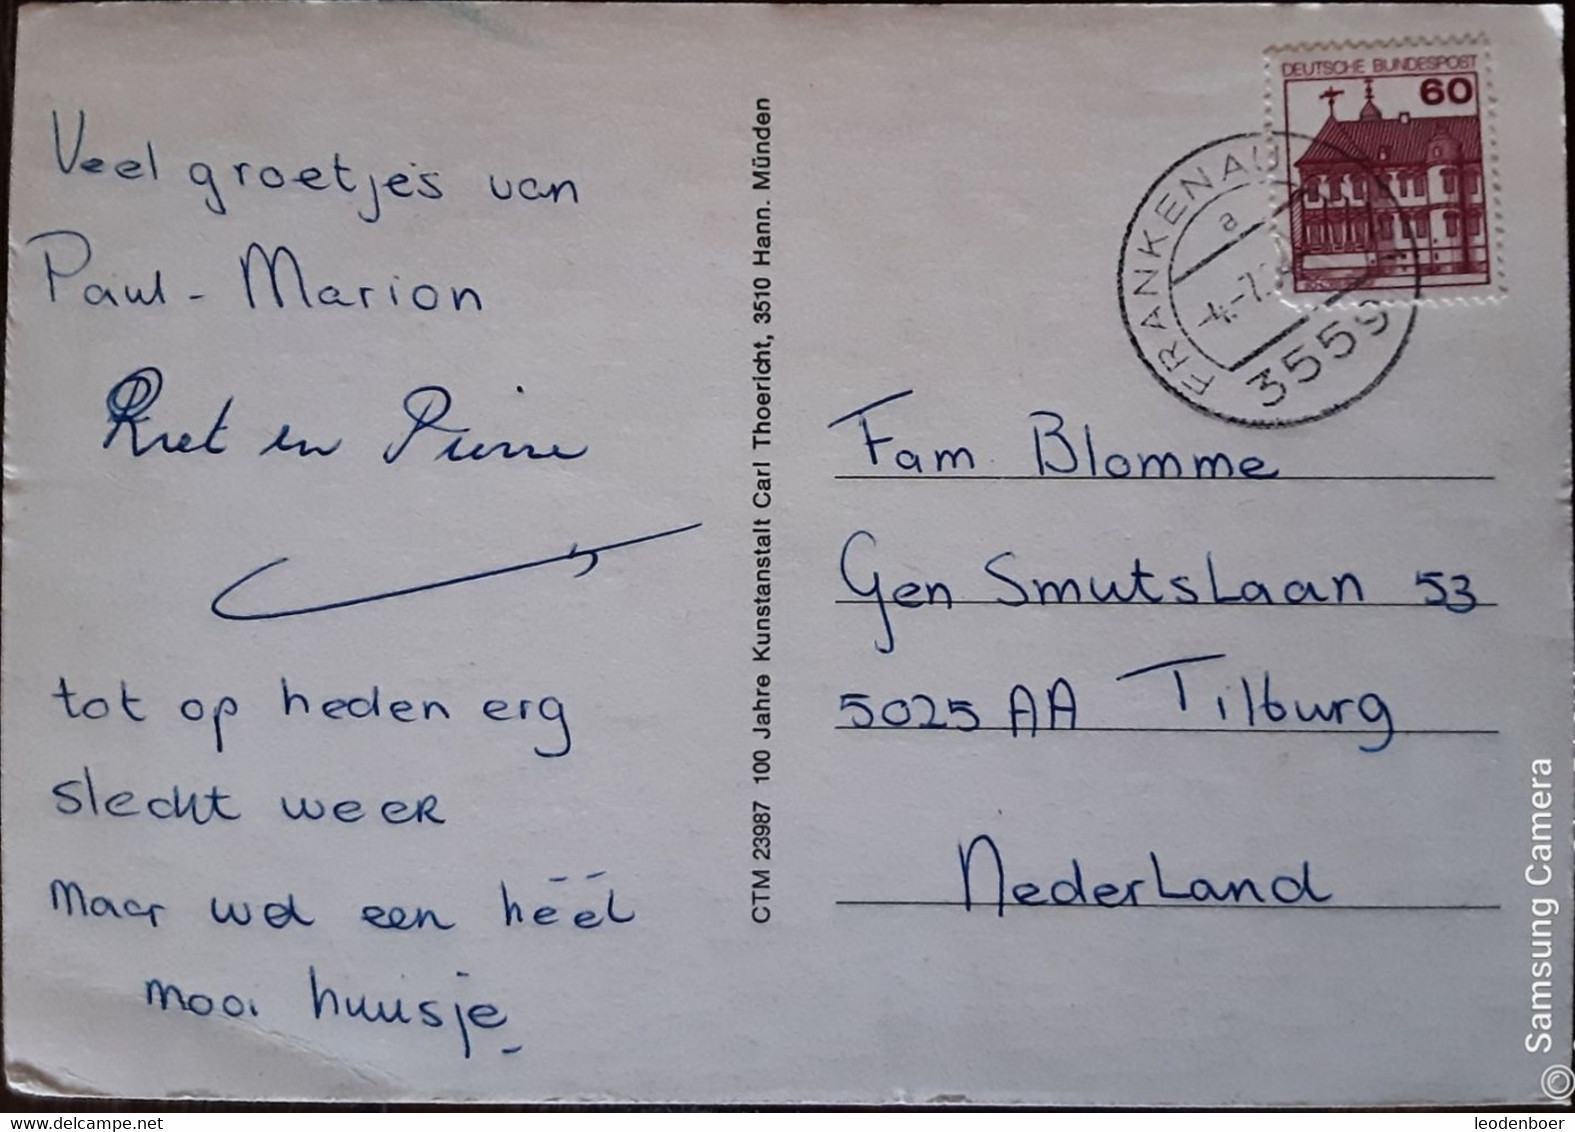 Veel groetjes van
Paul - Marion
Riet en Pierre
tot op heden erg
slecht weer
maar wel een héél
mooi huisje
CTM 23987 100 Jahre Kunstanstalt Carl Thoericht, 3510 Hann. Münden
DEUTSCHE BUNDESPOST
60
FRANKENAU
a
-4.-7.
3559
Fam. Blomme
Gen Smutslaan 53
5025 AA Tilburg
Nederland
© Samsung Camera
leodenboer